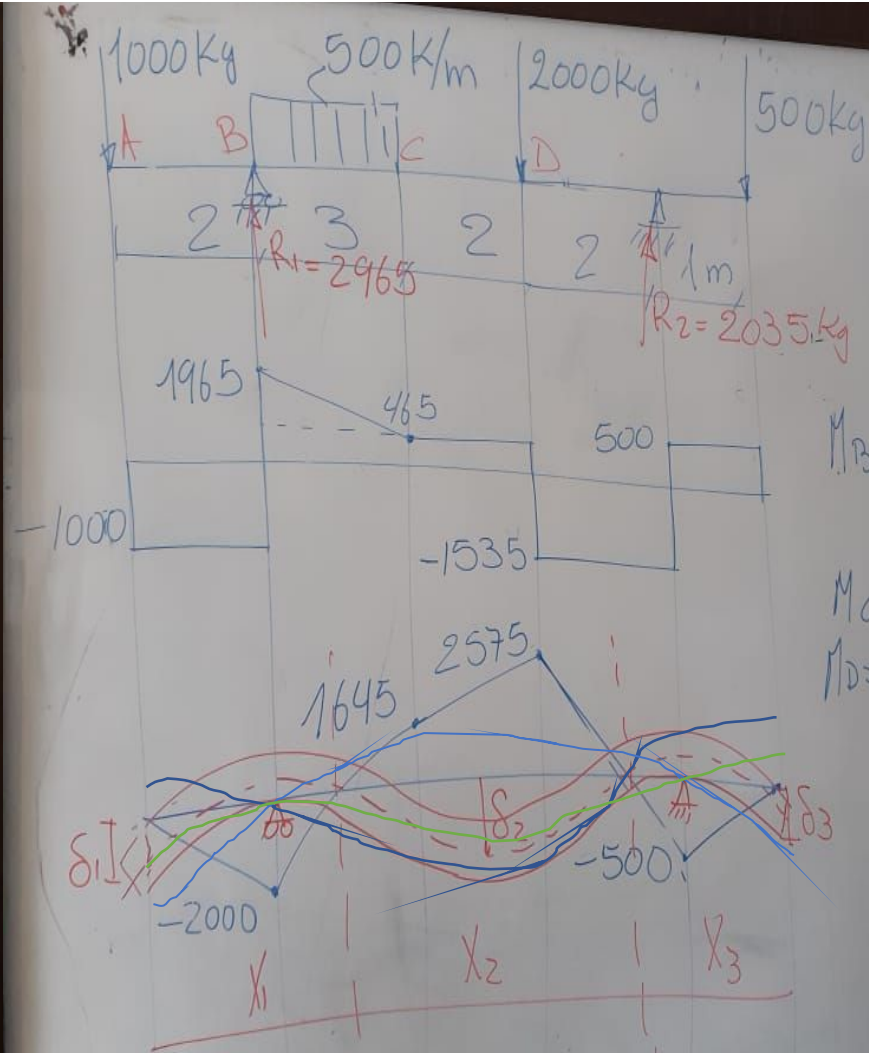 1000Kg 500K/m 2000Kg 500Kg
A B C D
2 3 2 2 1m
R1=2965 R2=2035.Kg
1965 465 500
-1000 -1535
2575
1645
δ1 δ2 δ3
-2000 -500
X1 X2 X3